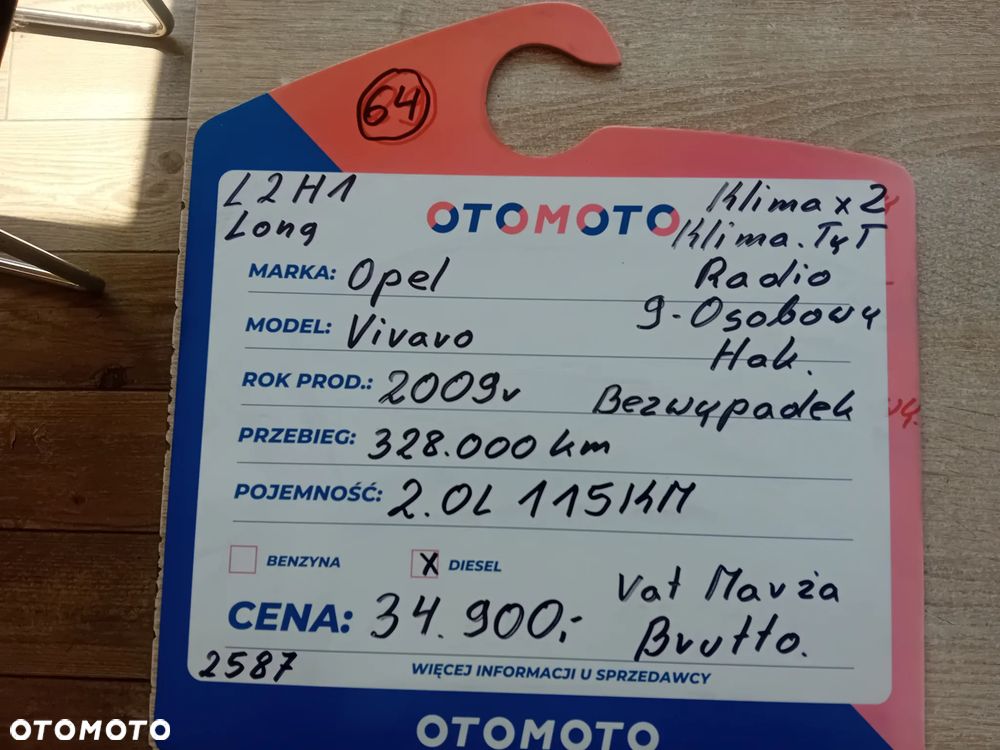 64
L2H1
Long
OTOMOTO
Klima x 2
Klima. Tył
MARKA: Opel
Radio
9-Osobowy
MODEL: Vivaro
Hak.
ROK PROD.: 2009r
Bezwypadek
PRZEBIEG: 328.000 km
POJEMNOŚĆ: 2.0L 115KM
BENZYNA
X DIESEL
Vat Marża
CENA: 34.900,-
Brutto.
2587
WIĘCEJ INFORMACJI U SPRZEDAWCY
OTOMOTO
OTOMOTO